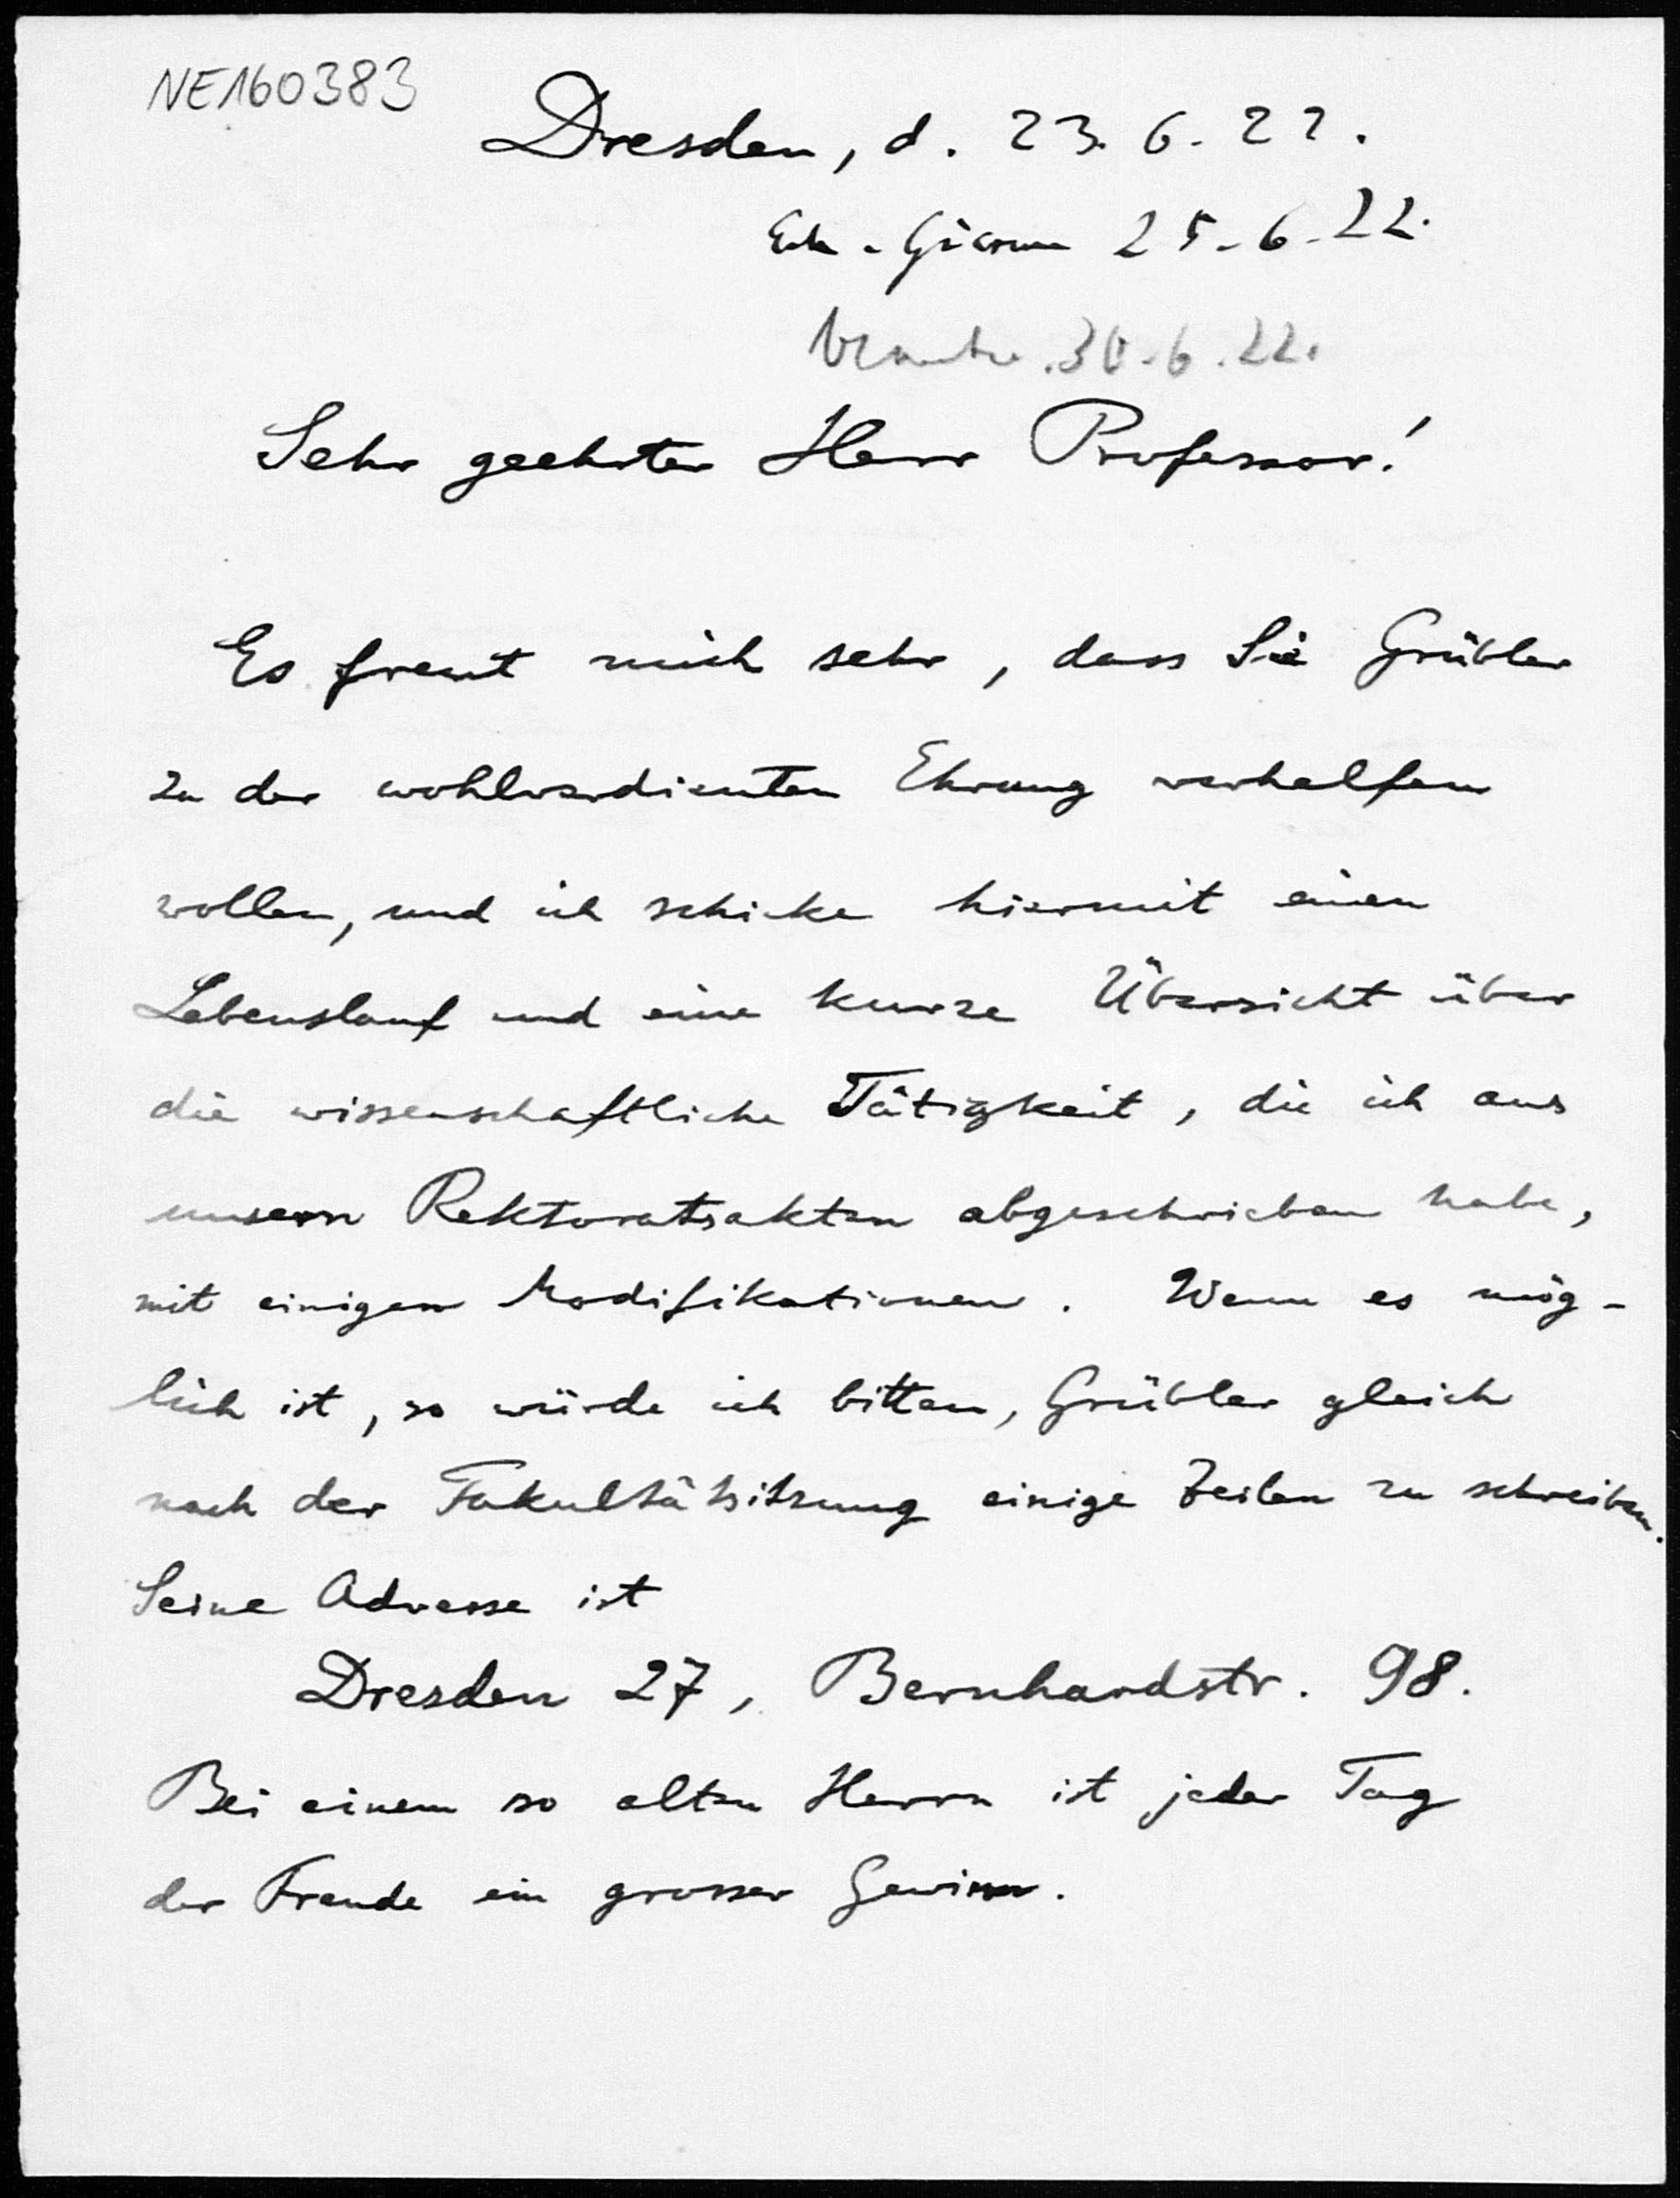 NE160383
Dresden, d. 23. 6. 22.
25-6-22.
30-6.22.
Sehr geehrter Herr Professor!
Es freut mich sehr, dass Sie Grübler
zu der wohlverdienten Ehrung verhelfen
wollen, und ich schicke hiermit einen
Lebenslauf und eine kurze Übersicht über
die wissenschaftliche Tätigkeit, die ich aus
unsern Rektoratsakten abgeschrieben habe,
mit einigen Modifikationen. Wenn es mög-
lich ist, so würde ich bitten, Grübler gleich
nach der Fakultätsitzung einige Zeilen zu schreiben.
Seine Adresse ist
Dresden 27, Bernhardstr. 98.
Bei einem so alten Herrn ist jeder Tag
der Freude ein grosser Gewinn.